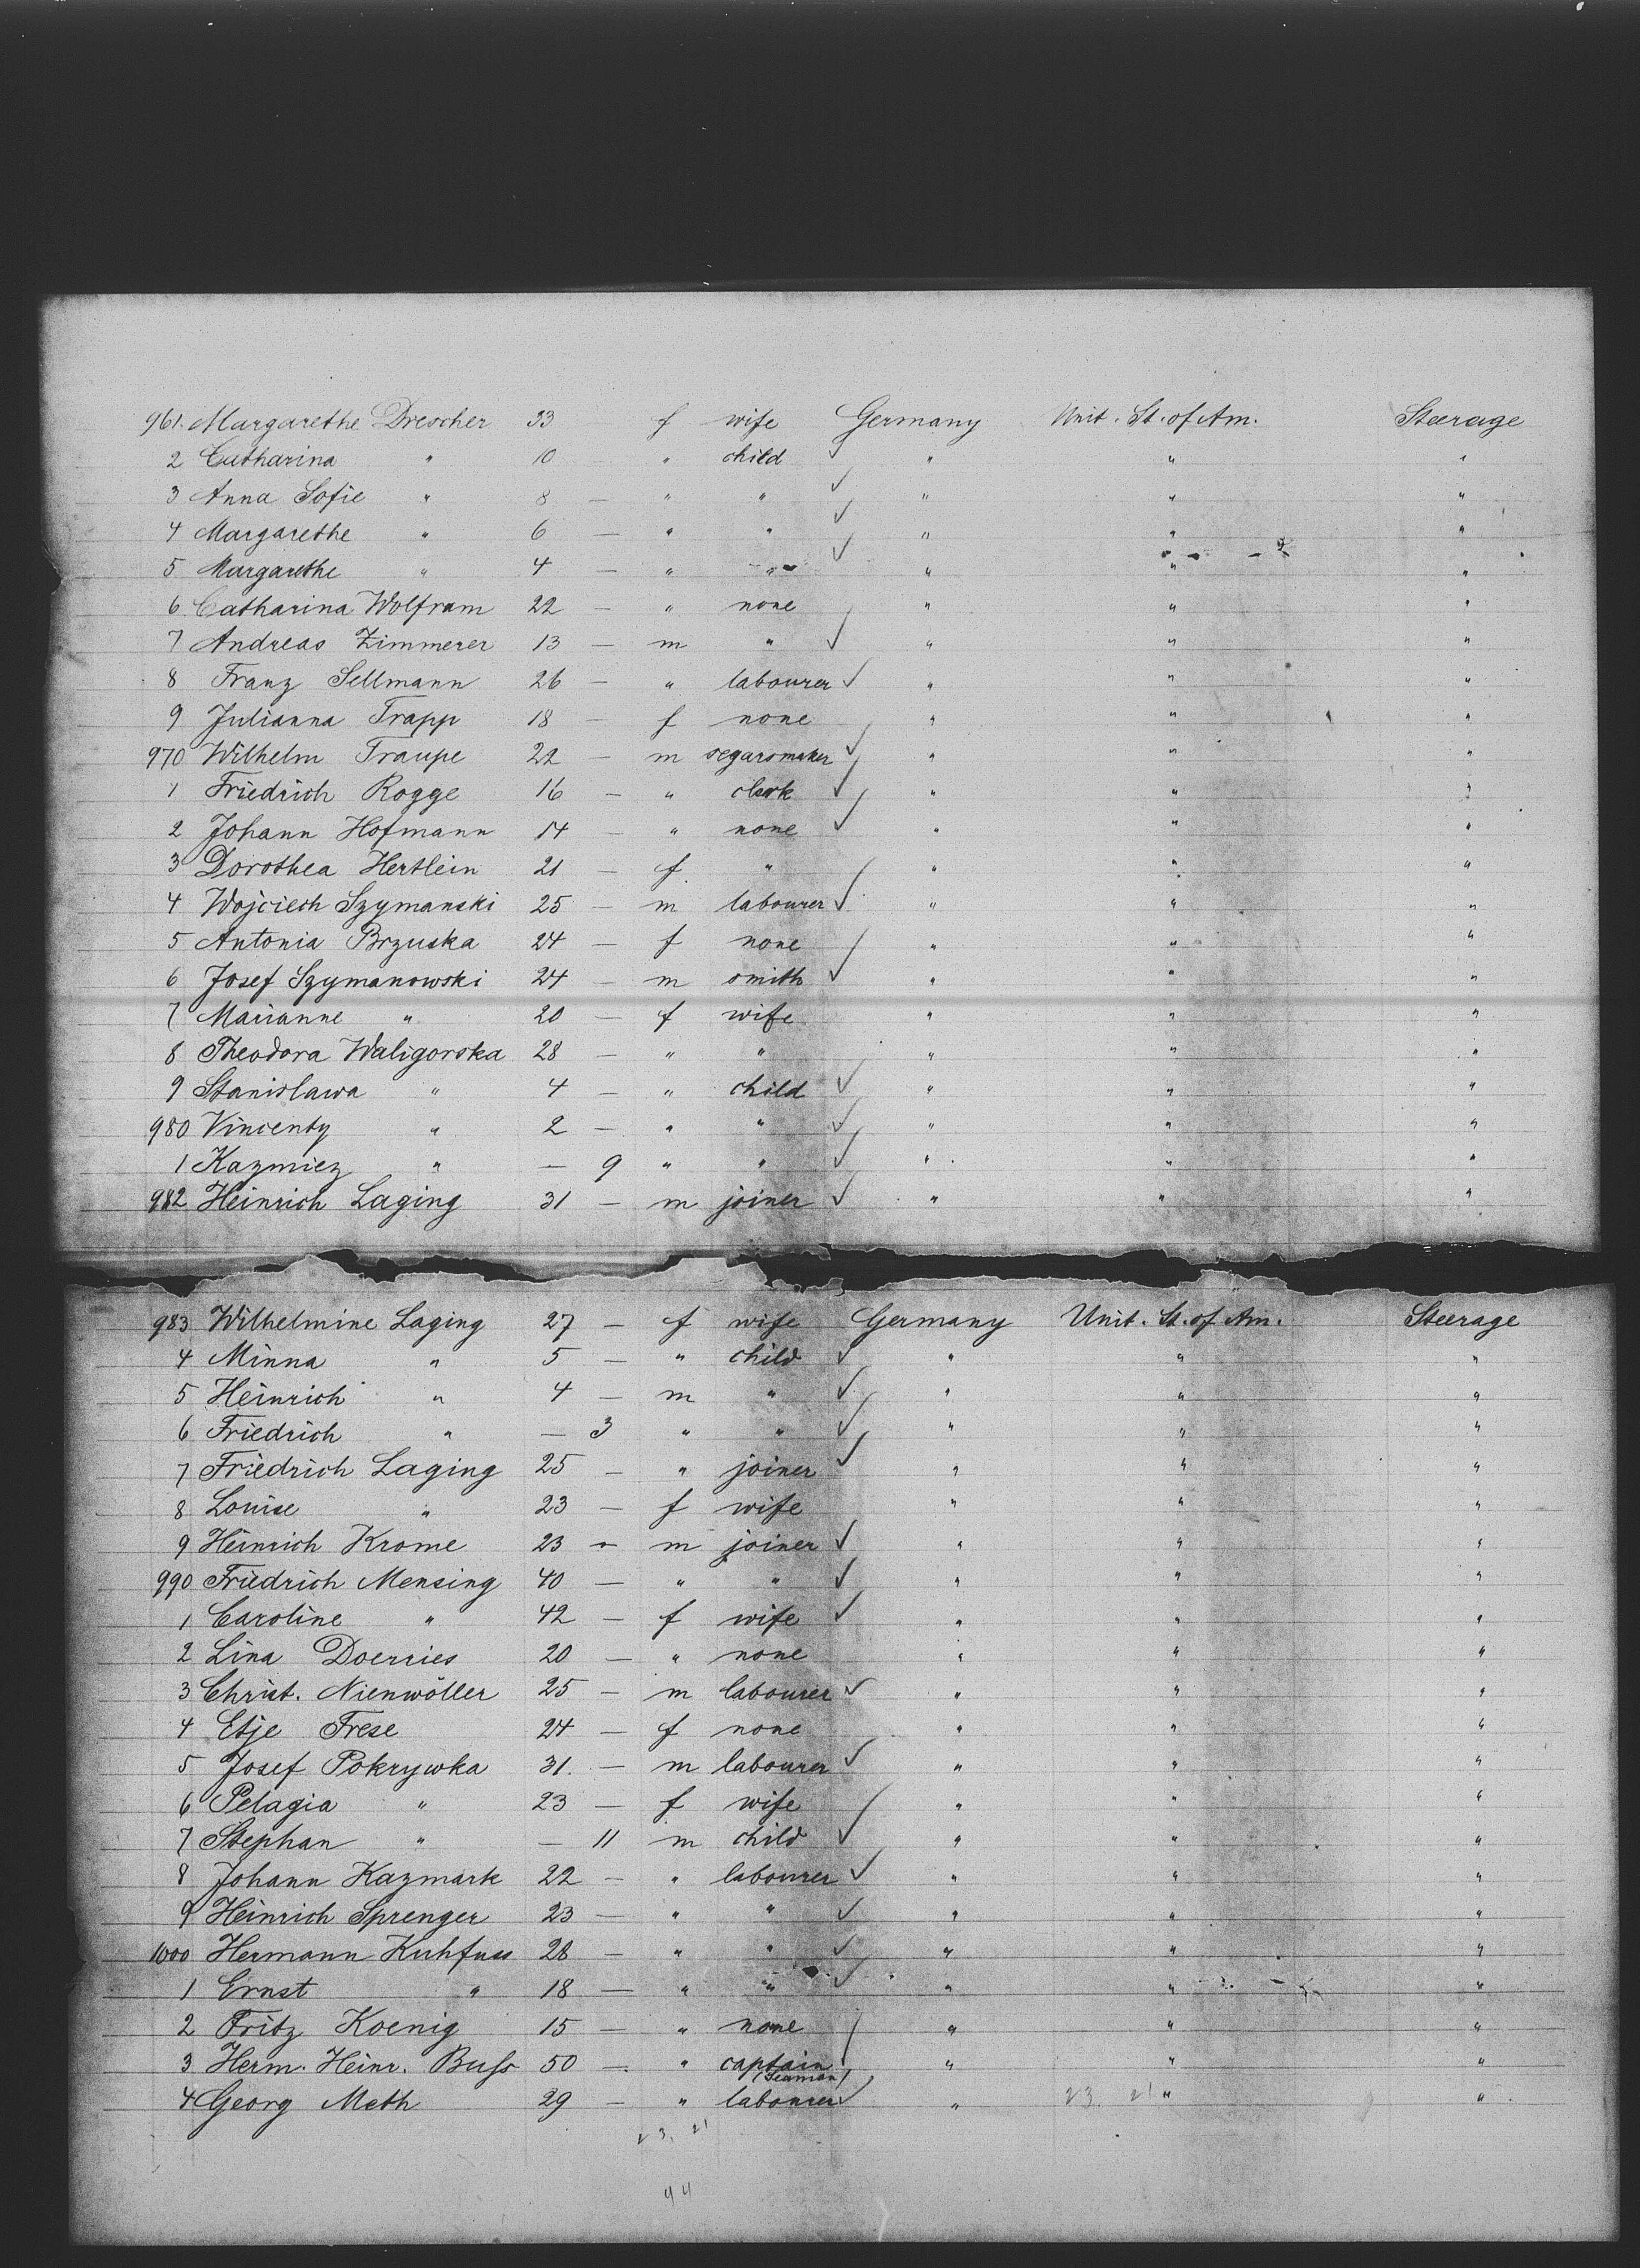 961. Margarethe Drescher 33 f wife Germany Unit. St. of Am. Steerage
2 Catharina " 10 " child " " "
3 Anna Sofie " 8 — " " " " "
4 Margarethe " 6 — " " " " "
5 Margarethe " 4 — " " " " "
6. Catharina Wolfram 22 — " none " " "
7 Andreas Zimmerer 13 — m " " " "
8 Franz Sellmann 26 — " labourer " " "
9 Julianna Trapp 18 — f none " " "
970 Wilhelm Traupe 22 — m segarsmaker " " "
1 Friedrich Rogge 16 — " clerk " " "
2 Johann Hofmann 14 — " none " " "
3 Dorothea Hertlein 21 — f " " " "
4 Wojciech Szymanski 25 — m labourer " " "
5 Antonia Brzuska 24 — f none " " "
6 Josef Szymanowski 24 — m smith " " "
7 Marianne " 20 — f wife " " "
8 Theodora Waligorska 28 — " " " " "
9 Stanislawa " 4 — " child " " "
980 Vincenty " 2 — " " " " "
1 Kazmiez " — 9 " " " " "
982 Heinrich Laging 31 — m joiner " " "
983 Wilhelmine Laging 27 — f wife Germany Unit. St. of Am. Steerage
4 Minna " 5 — " child " " "
5 Heinrich " 4 — m " " " "
6 Friedrich " — 3 " " " " "
7 Friedrich Laging 25 — " joiner " " "
8 Louise " 23 — f wife " " "
9 Heinrich Krome 23 — m joiner " " "
990 Friedrich Mensing 40 — " " " " "
1 Caroline " 42 — f wife " " "
2 Lina Doerries 20 — " none " " "
3 Christ. Nienwöller 25 — m labourer " " "
4 Etje Frese 24 — f none " " "
5 Josef Pokrywka 31. — m labourer " " "
6 Pelagia " 23 — f wife " " "
7 Stephan " — 11 m child " " "
8 Johann Kazmark 22 — " labourer " " "
9 Heinrich Sprenger 23 — " " " " "
1000 Hermann Kuhfuss 28 — " " " " "
1 Ernst " 18 — " " " " "
2 Fritz Koenig 15 — " none " " "
3 Herm. Heinr. Buss 50 — " captain " " "
(Seaman)
4 Georg Meth 29 — " labourer " 23. 21 " "
23, 21
44